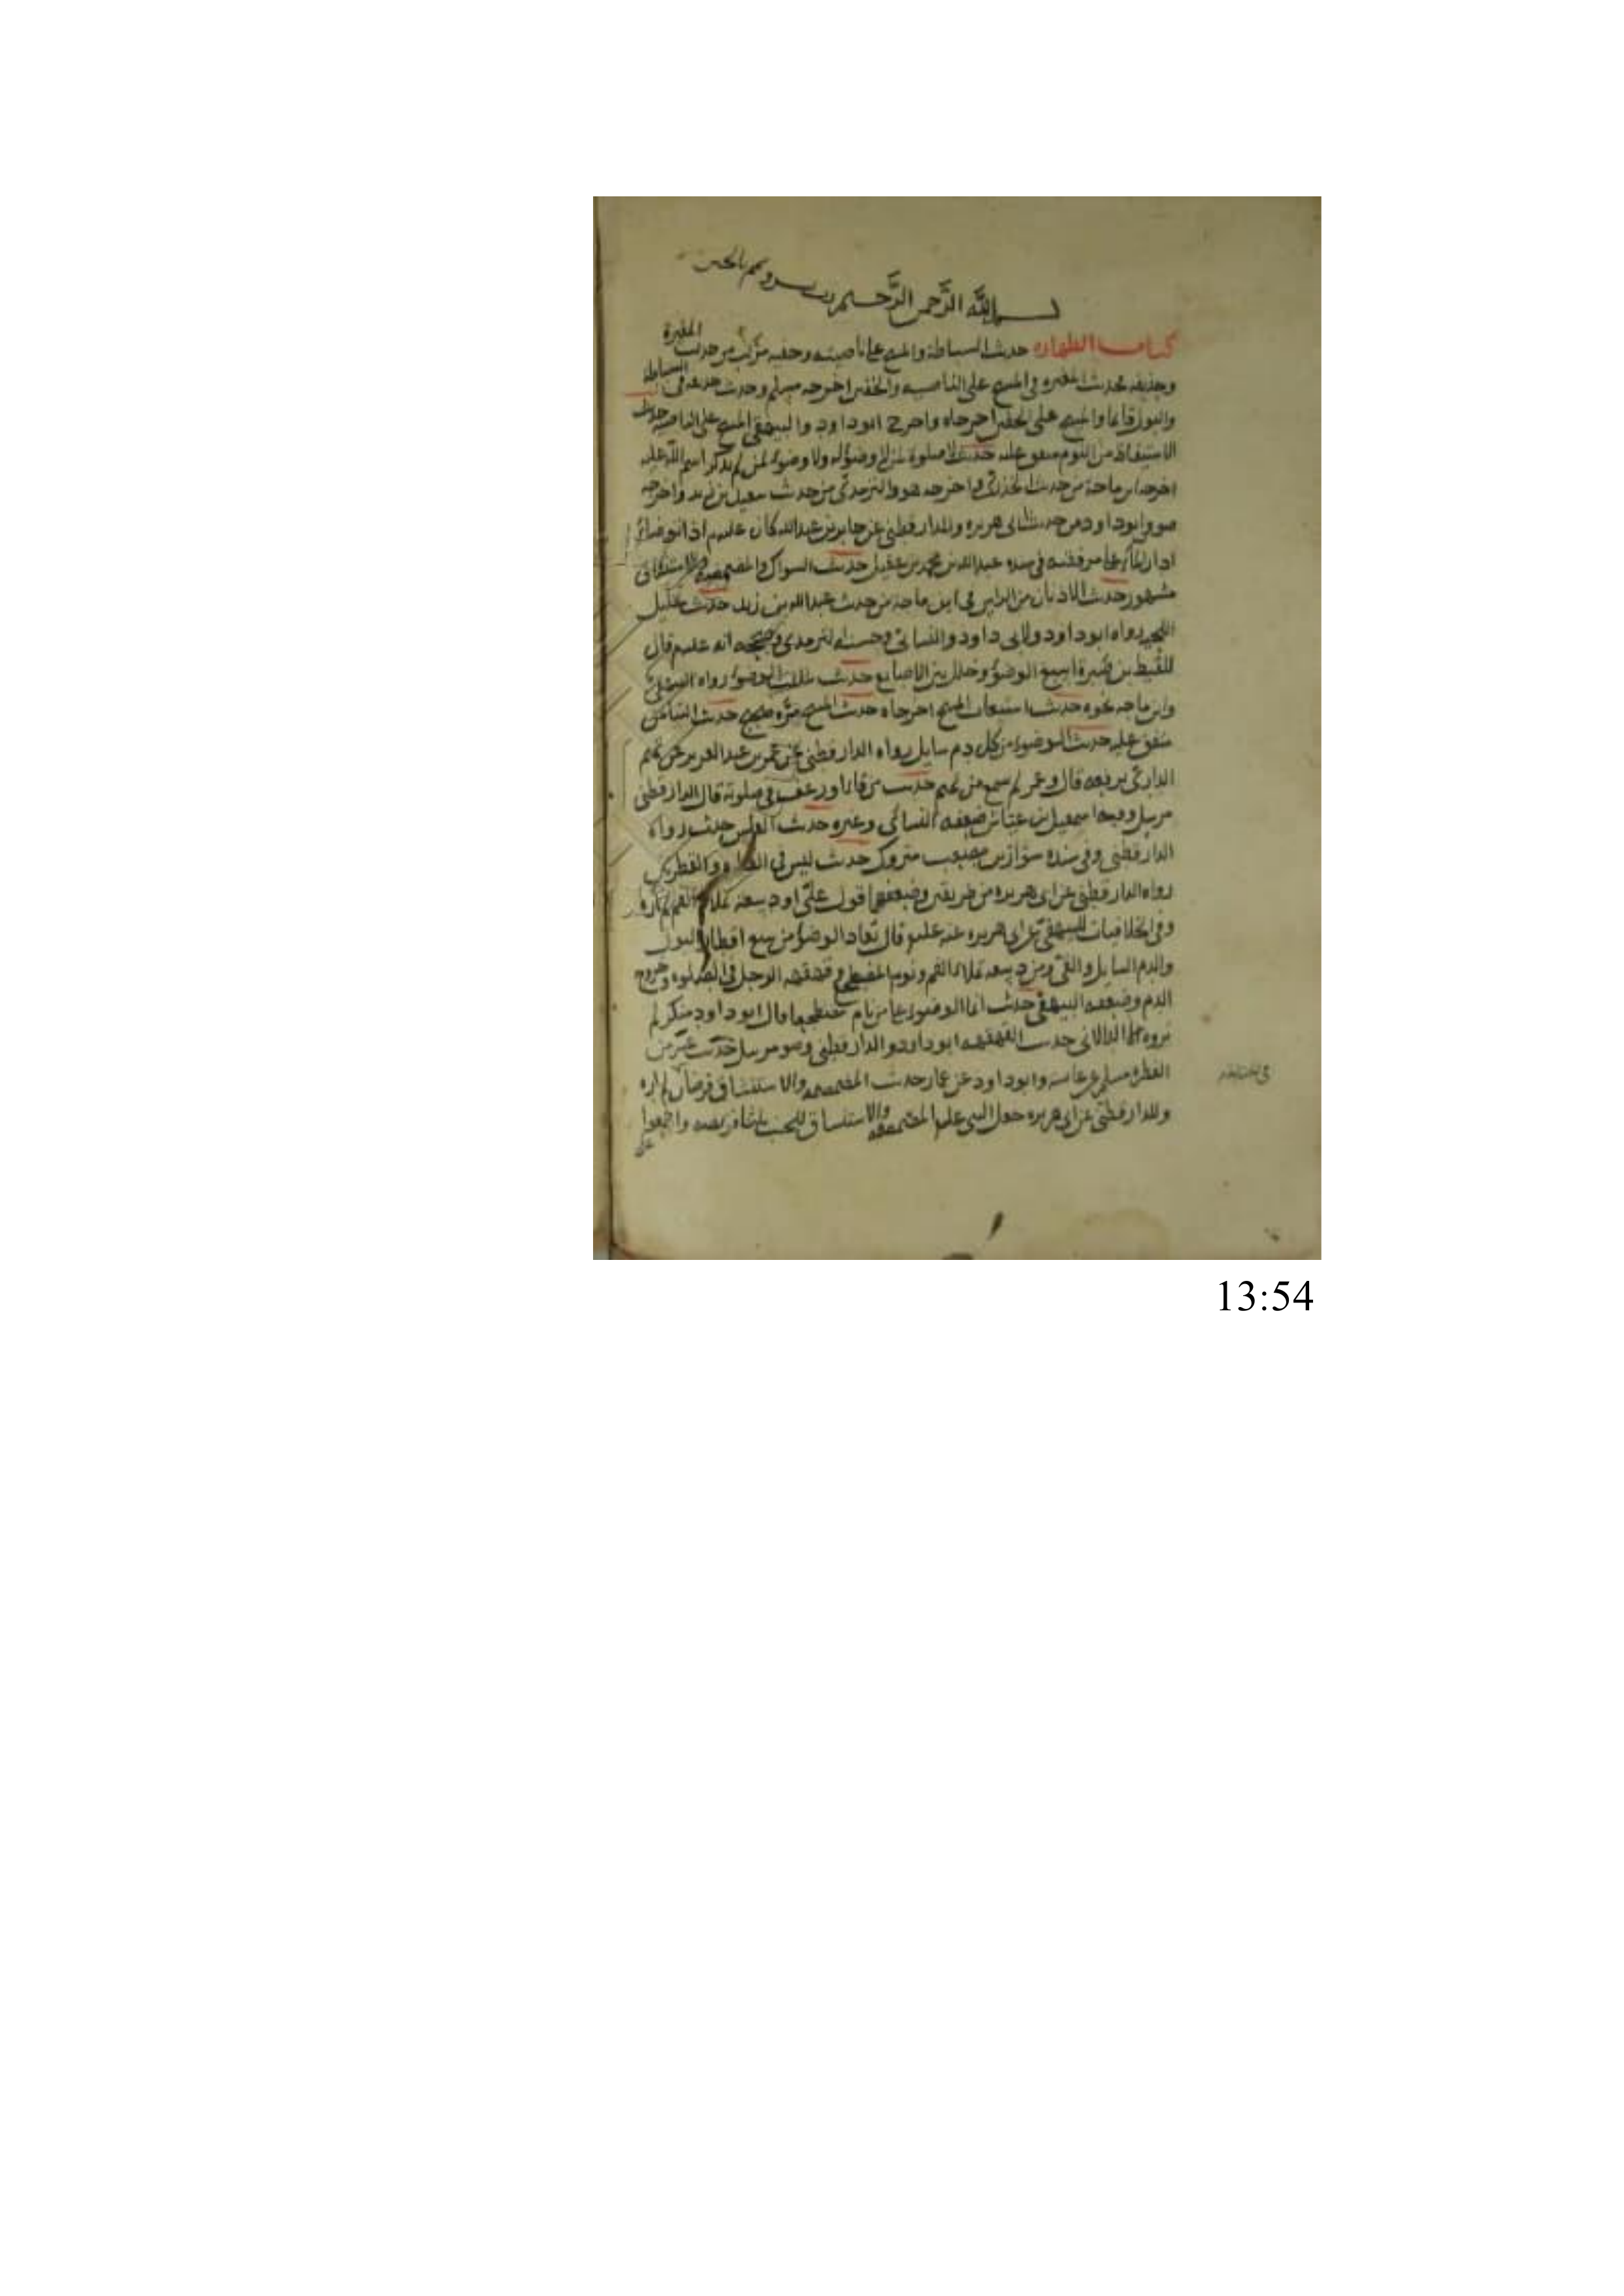 بسم الله الرحمن الرحيم رب يسر وتمم بالخير
كتاب الطهارة حديث السباطة والمسح على ناصيته وخفيه مركب من حديث المغيرة
وحذيفة فحديث المغيرة في المسح على الناصية والخفين اخرجه مسلم وحديث حذيفة في السباطة
والبول قائما والمسح على الخفين اخرجاه واخرج ابو داود والبيهقي المسح على الناصية حديث
الاستيقاظ من النوم متفق عليه حديث لا صلوة لمن لا وضوء له ولا وضوء لمن لم يذكر اسم الله عليه
اخرجه ابن ماجة من حديث الخدري واخرجه هو والترمذي من حديث سعيد بن زيد واخرجه
هو وابو داود من حديث ابي هريرة وللدارقطني عن جابر بن عبد الله كان عليه م اذا توضأ
ادار الماء على مرفقيه في سنده عبد الله بن محمد بن عقيل حديث السواك والمضمضة والاستنشاق
مشهور حديث الاذنان من الراس في ابن ماجه من حديث عبد الله بن زيد حديث تخليل
اللحية رواه ابو داود ولابي داود والنسائي وحسنه الترمذي وصححه انه عليه م قال
للقيط بن صبرة اسبغ الوضوء وخلل بين الاصابع حديث تثليث الوضوء رواه
وابن ماجه نحوه حديث استيعاب المسح اخرجاه حديث المسح مرة صحيح حديث التيامن
متفق عليه حديث الوضوء من كل دم سايل رواه الدارقطني عن عمر بن عبد العزيز عن تميم
الداري يرفعه قال وعمر لم يسمع من تميم حديث من قاء او رعف في صلوته قال الدارقطني
مرسل وفيه اسمعيل بن عياش ضعفه النسائي وغيره حديث القلس حدث رواه
الدارقطني وفي سنده سوار بن مصعب متروك حديث ليس في القطرة والقطرتين
رواه الدارقطني عن ابي هريرة من طريقين وضعفهما قول علي او دسعة تملأ الفم لم اره
وفي الخلافيات للبيهقي عن ابي هريرة عنه عليه م قال تعاد الوضوء من سبع اقطار البول
والدم السايل والقي ومن دسعة تملأ الفم ونوم المضطجع وقهقهة الرجل في الصلوة وخروج
الدم وضعفه البيهقي حديث انما الوضوء على من نام مضطجعا قال ابو داود منكر لم
يروه الا الدالاني حديث القهقهة ابو داود والدارقطني وهو مرسل حديث عشر من
الفطرة مسلم عن عائشة وابو داود عن عمار حديث المضمضة والاستنشاق فرضان لم اره
وللدارقطني عن ابي هريرة جعل النبي عليه م المضمضة والاستنشاق للجنب ثلثا فريضة واجمعوا
على
13:54